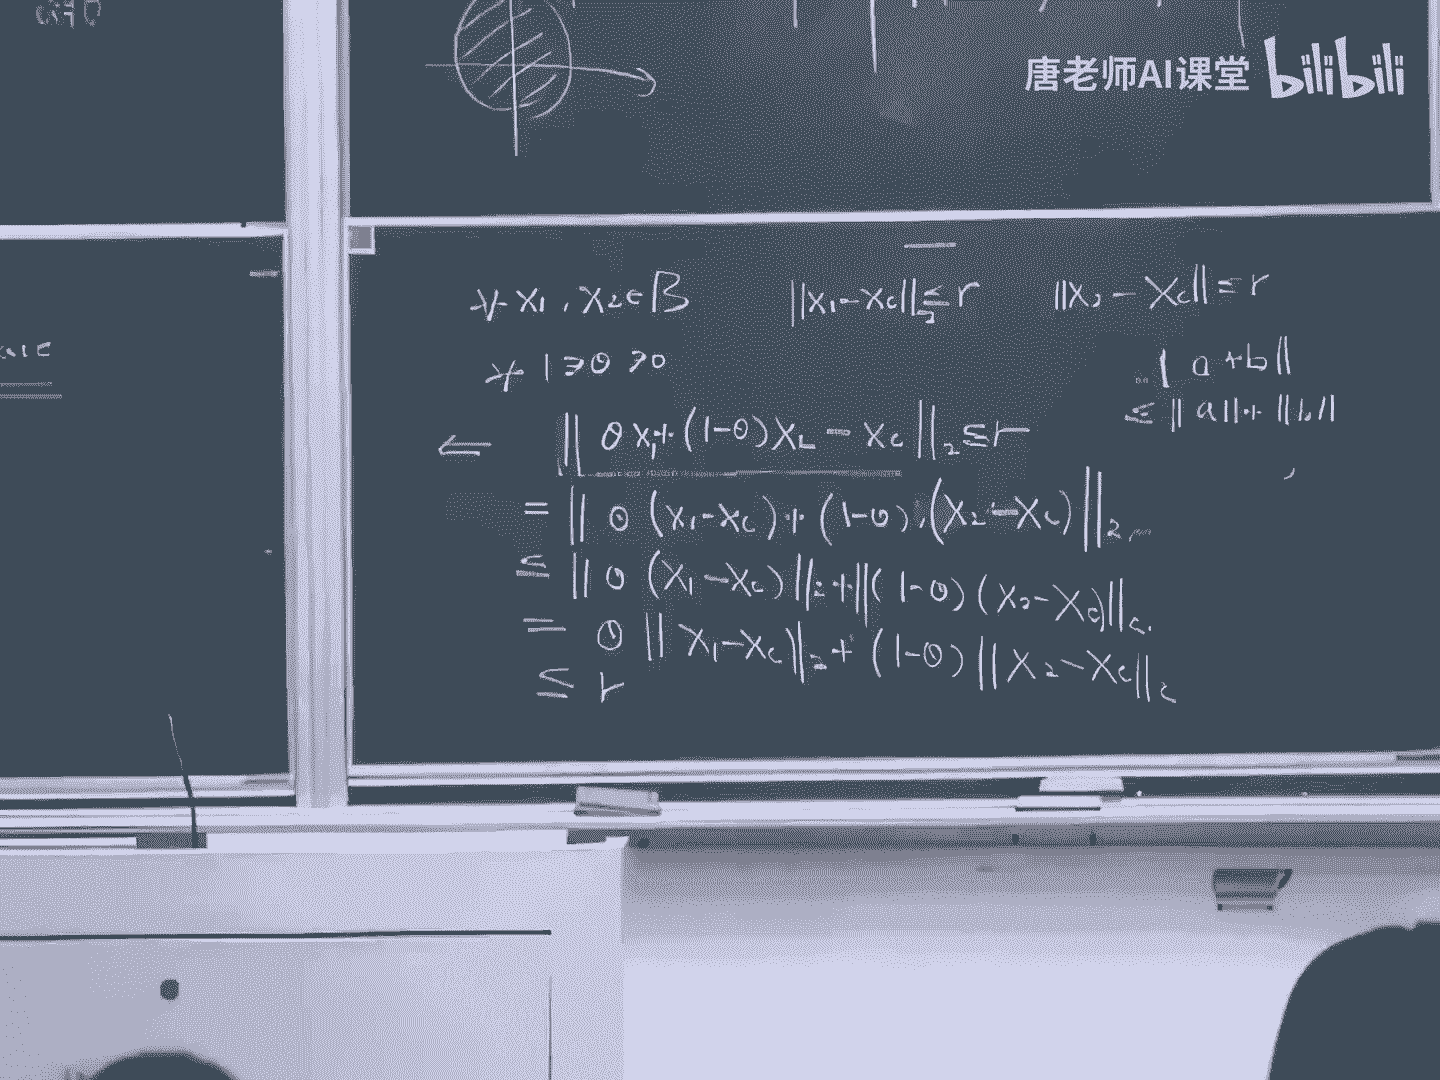 唐老师AI课堂 bilibili
∀ x₁, x₂ ∈ B ‖x₁-x_c‖₂ ≤ r ‖x₂-x_c‖ ≤ r
∀ 1 ≥ θ ≥ 0
‖a+b‖
≤ ‖a‖+‖b‖
⇐ ‖θx₁+(1-θ)x₂-x_c‖₂ ≤ r
= ‖θ(x₁-x_c)+(1-θ)(x₂-x_c)‖₂
≤ ‖θ(x₁-x_c)‖₂+‖(1-θ)(x₂-x_c)‖₂
= θ‖x₁-x_c‖₂+(1-θ)‖x₂-x_c‖₂
≤ r